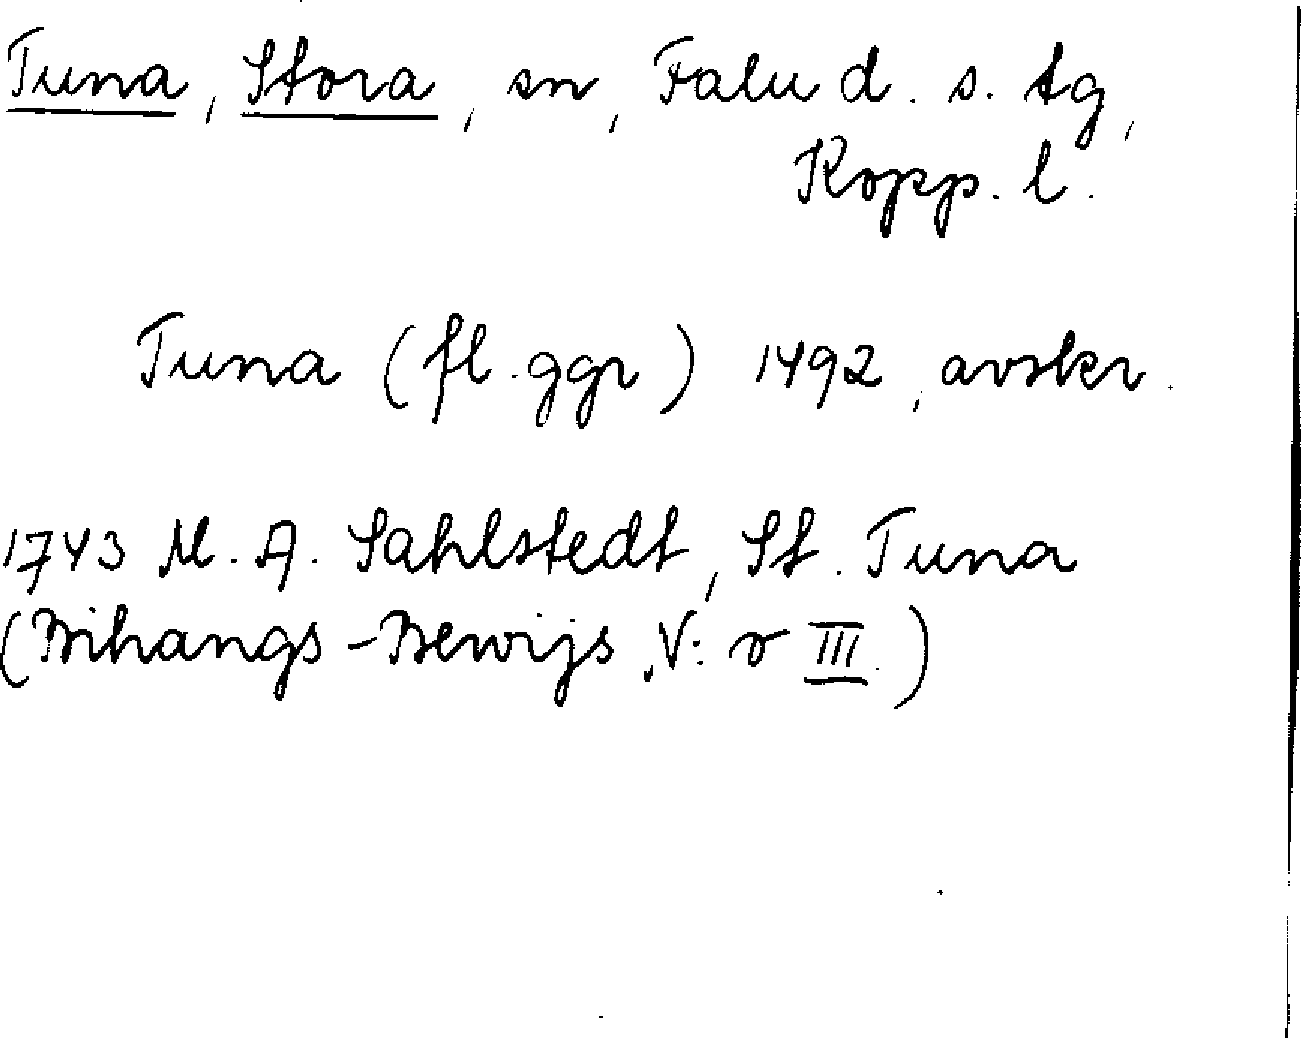 Tuna, Stora, sn, Falu d. s. tg,
Kopp. l.
Tuna (fl. ggr) 1492, avskr.
1743 M. A. Sahlstedt, St. Tuna
(Bihangs-Bewijs, N:o III.)